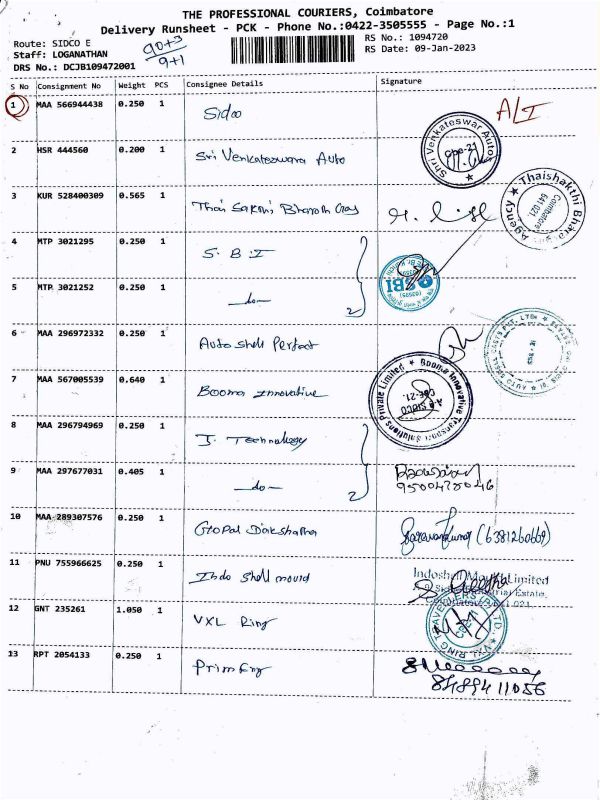 THE PROFESSIONAL COURIERS, Coimbatore
Delivery Runsheet - PCK - Phone No.:0422-3505555 - Page No.:1
Route: SIDCO E
RS No.: 1094720
Staff: LOGANATHAN
RS Date: 09-Jan-2023
DRS No.: DCJB109472001
90+3
9+1
S No Consignment No Weight PCS Consignee Details Signature
1 MAA 566944438 0.250 1 Sidco
2 HSR 444560 0.200 1 Sri Venkateswara Auto
Shri Venkateswar Auto
3 KUR 528400309 0.565 1 Thai Sakthi Bharath Gas
Thaishakthi Bhara Agency
Coimbatore
641 021.
4 MTP 3021295 0.250 1 S.B.I
5 MTP 3021252 0.250 1 —do— 2
SBI
6 MAA 296972332 0.250 1 Auto shell Perfect
7 MAA 567005539 0.640 1 Booma Innovative
Booma Innovative Transport Solutions Private Limited
SIDCO
CBE-21.
8 MAA 296794969 0.250 1 J. Technology
9 MAA 297677031 0.405 1 —do— 2
9500478046
10 MAA 289307576 0.250 1 Gopal Dakshatha
(6381260669)
11 PNU 755966625 0.250 1 Indo shell mould
Indoshell Mould Limited
Estate,
12 GNT 235261 1.050 1 VXL Ring
VXL RING TRAVELLERS LTD.
13 RPT 2054133 0.250 1 Prim Eng
8489411056